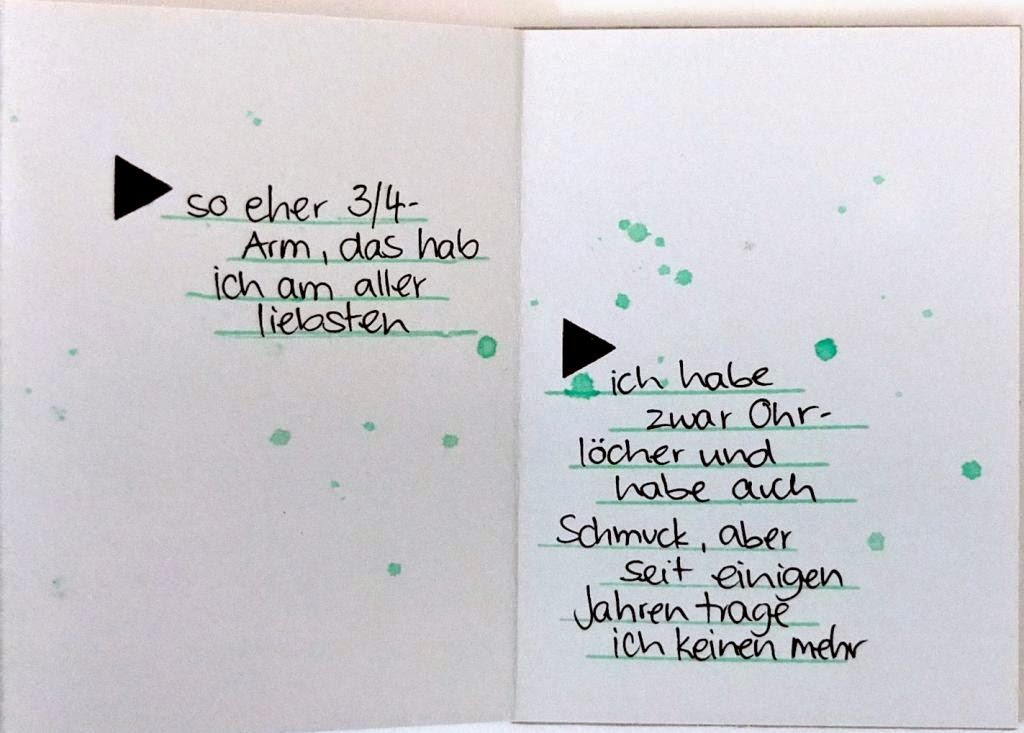 so eher 3/4-
Arm, das hab
ich am aller
liebsten
ich habe
zwar Ohr-
löcher und
habe auch
Schmuck, aber
seit einigen
Jahren trage
ich keinen mehr